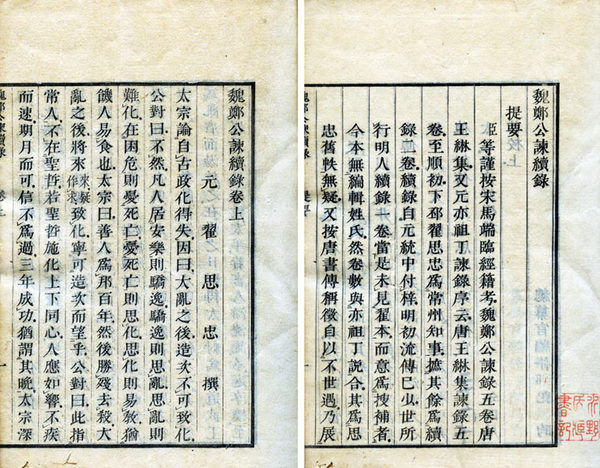 魏鄭公諫續錄
提要
臣等謹按宋馬端臨經籍考魏鄭公諫錄五卷唐
王綝集又元亦祖丁諫錄序云唐王綝集諫錄五
卷至順初下邳翟思忠爲常州知事摭其餘爲續
錄卷續錄自元統中付梓明初流傳已少世所
行明人續錄一卷當是未見翟本而意爲搜補者
今本無編輯姓氏然卷數與亦祖丁說合其爲思
忠舊帙無疑又按唐書傳稱徵自以不世遇乃展
魏鄭公諫續錄卷上
元 翟 思 忠 撰
太宗論自古政化得失因曰大亂之後造次不可致化
公對曰不然凡人居安樂則驕逸驕逸則思亂思亂則
難化在危困則憂死亡憂死亡則思化思化則易教猶
饑人易食也太宗曰善人爲邦百年然後勝殘去殺大
亂之後將來來疑作求致化寧可造次而望乎公對曰此指
常人不在聖哲若聖哲施化上下同心人應如響不疾
而速期月而可信不爲過三年成功猶謂其晚太宗深
魏鄭公諫續錄 卷上